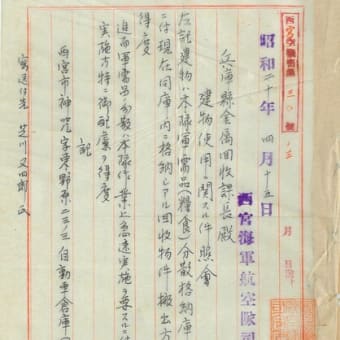 昭和二十年四月十五日
西宮海軍航空隊司
兵庫縣金属回収課長殿
建物使用ニ関スル件照會
左記建物ハ本隊軍需品(糧食)分散格納庫
ニハ現在同庫ノ内ニ格納シアル回収物件ノ搬出方
得度
進而軍需品分散ハ本隊作業上急速実施ヲ要スルニ付
実施方特ニ御配慮ヲ得度
記
西宮市神呪字東野原二三ノ三自動車倉庫
宛送付先 芝川又四郎氏